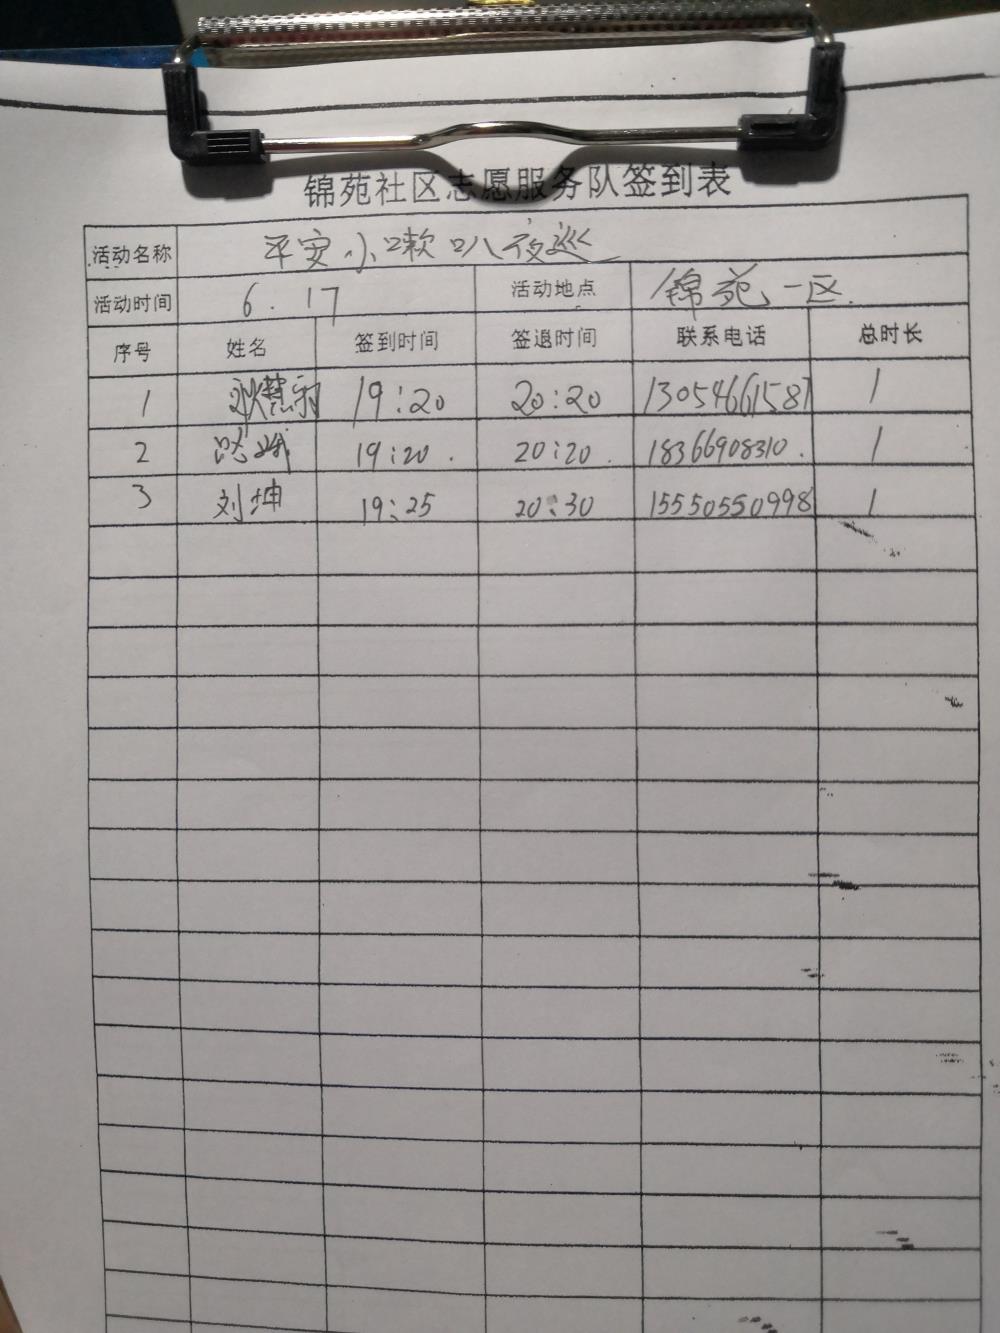 锦苑社区志愿服务队签到表
活动名称 平安小喇叭夜巡
活动时间 6.17 活动地点 锦苑一区
序号 姓名 签到时间 签退时间 联系电话 总时长
1 19:20 20:20 13054661587 1
2 19:20. 20:20. 18366908310. 1
3 刘坤 19:25 20:30 15550550998 1